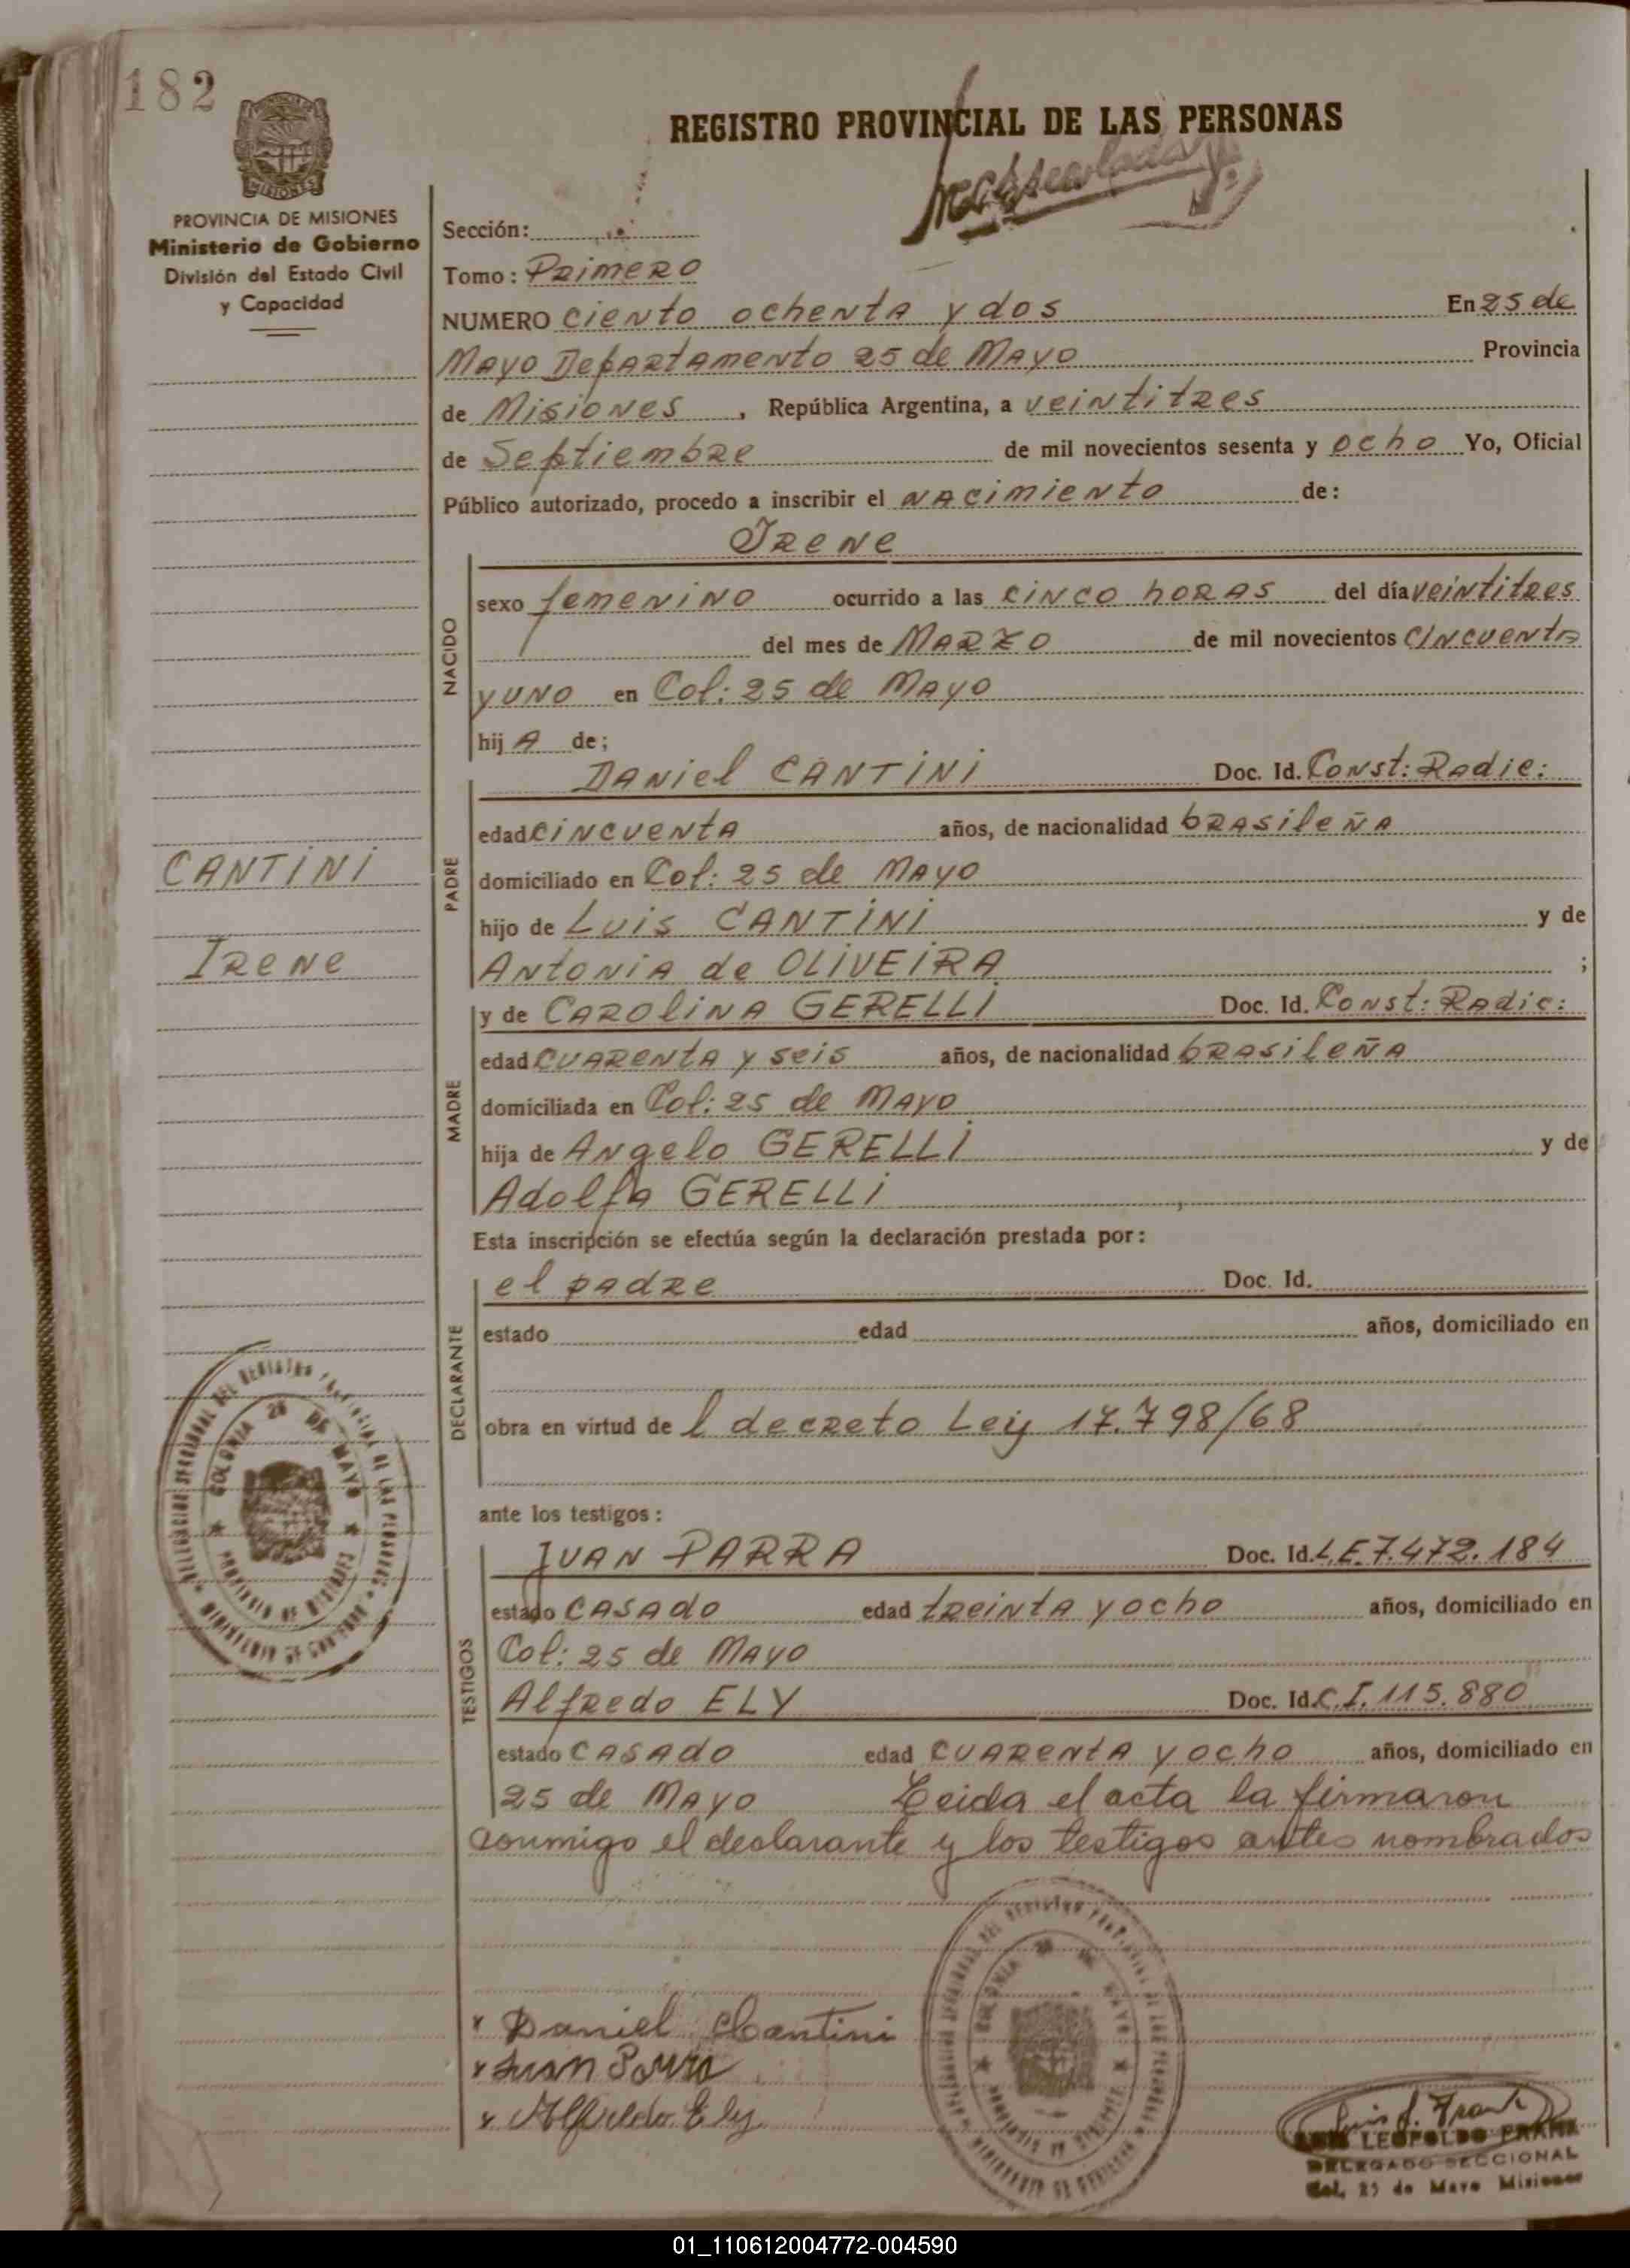 182
REGISTRO PROVINCIAL DE LAS PERSONAS
PROVINCIA DE MISIONES
Ministerio de Gobierno
División del Estado Civil
y Capacidad
Sección:
Tomo: Primero
NUMERO ciento ochenta y dos En 25 de
Mayo Departamento 25 de Mayo Provincia
de Misiones, República Argentina, a veintitres
de Septiembre de mil novecientos sesenta y ocho Yo, Oficial
Público autorizado, procedo a inscribir el nacimiento de:
Irene
NACIDO
sexo femenino ocurrido a las cinco horas del día veintitres
del mes de Marzo de mil novecientos cincuenta
y uno en Col: 25 de Mayo
hija de;
PADRE
Daniel CANTINI Doc. Id. Const: Radic:
edad cincuenta años, de nacionalidad brasileña
domiciliado en Col: 25 de Mayo
hijo de Luis CANTINI y de
Antonia de OLIVEIRA ;
CANTINI
Irene
MADRE
y de Carolina GERELLI Doc. Id. Const: Radic:
edad cuarenta y seis años, de nacionalidad brasileña
domiciliada en Col: 25 de Mayo
hija de Angelo GERELLI y de
Adolfa GERELLI
Esta inscripción se efectúa según la declaración prestada por:
DECLARANTE
el padre Doc. Id.
estado edad años, domiciliado en
obra en virtud del decreto Ley 17.798/68
ante los testigos:
TESTIGOS
Juan PARRA Doc. Id. L.E. 7.472.184
estado casado edad treinta y ocho años, domiciliado en
Col: 25 de Mayo
Alfredo ELY Doc. Id. C.I. 115.880
estado casado edad cuarenta y ocho años, domiciliado en
25 de Mayo Leida el acta la firmaron
conmigo el declarante y los testigos antes nombrados
COLONIA 25 DE MAYO
PROVINCIA DE MISIONES
x Daniel Cantini
x Juan Parra
x Alfredo Ely
Luis L. Frank
LUIS LEOPOLDO FRANK
DELEGADO SECCIONAL
Col. 25 de Mayo Misiones
01_110612004772-004590